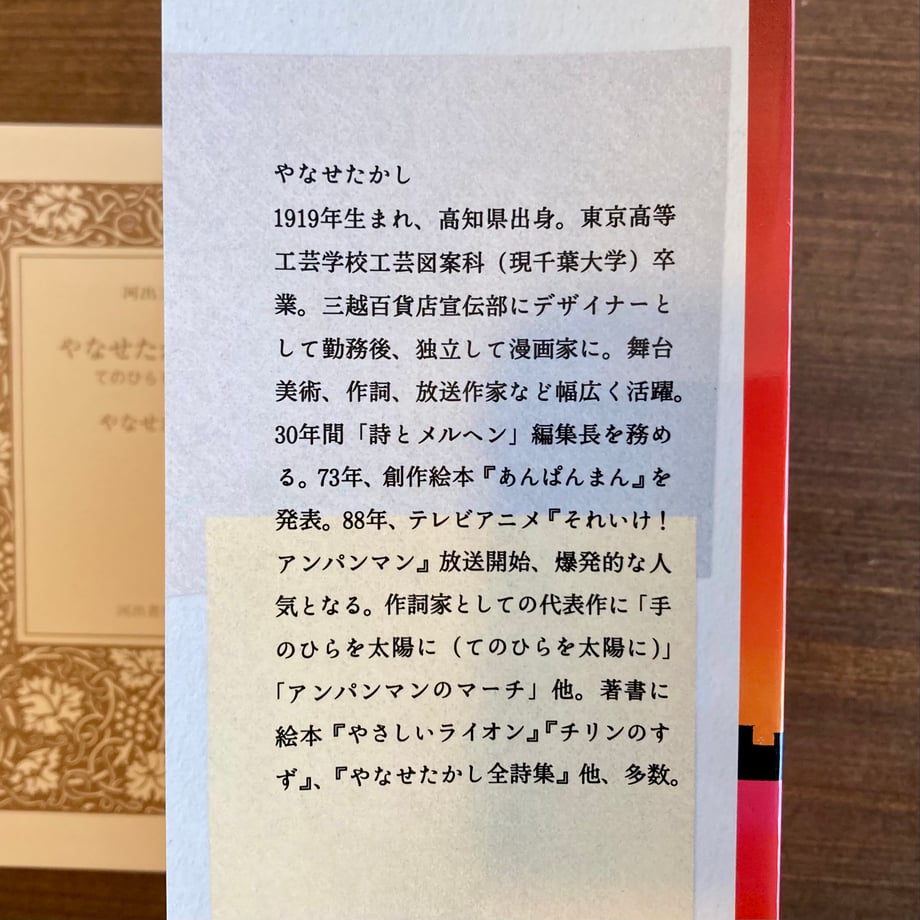 やなせたかし
1919年生まれ、高知県出身。東京高等
工芸学校工芸図案科（現千葉大学）卒
業。三越百貨店宣伝部にデザイナーと
して勤務後、独立して漫画家に。舞台
美術、作詞、放送作家など幅広く活躍。
30年間「詩とメルヘン」編集長を務め
る。73年、創作絵本『あんぱんまん』を
発表。88年、テレビアニメ『それいけ！
アンパンマン』放送開始、爆発的な人
気となる。作詞家としての代表作に「手
のひらを太陽に（てのひらを太陽に）」
「アンパンマンのマーチ」他。著書に
絵本『やさしいライオン』『チリンのす
ず』、『やなせたかし全詩集』他、多数。
河出
やなせた
てのひら
やなせ
河出書